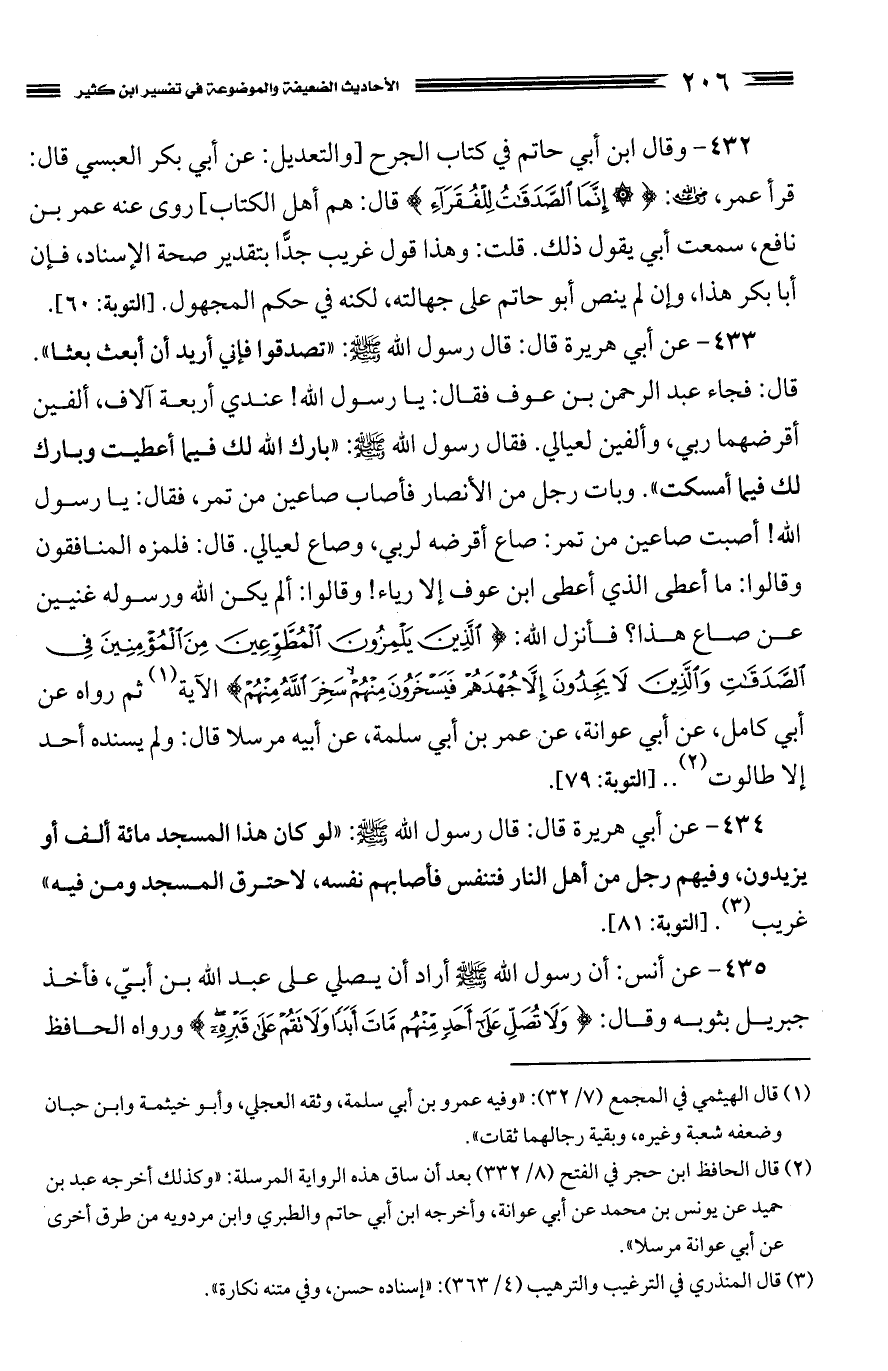 ٢٠٦ الأحاديث الضعيفة والموضوعة في تفسير ابن كثير
٤٣٢- وقال ابن أبي حاتم في كتاب الجرح [والتعديل: عن أبي بكر العبسي قال:
قرأ عمر، رضي الله عنه: ﴿ ۞ إِنَّمَا ٱلصَّدَقَٰتُ لِلْفُقَرَآءِ ﴾ قال: هم أهل الكتاب] روى عنه عمر بن
نافع، سمعت أبي يقول ذلك. قلت: وهذا قول غريب جدًّا بتقدير صحة الإسناد، فإن
أبا بكر هذا، وإن لم ينص أبو حاتم على جهالته، لكنه في حكم المجهول. [التوبة: ٦٠].
٤٣٣- عن أبي هريرة قال: قال رسول الله ﷺ: «تصدقوا فإني أريد أن أبعث بعثا».
قال: فجاء عبد الرحمن بن عوف فقال: يا رسول الله! عندي أربعة آلاف، ألفين
أقرضهما ربي، وألفين لعيالي. فقال رسول الله ﷺ: «بارك الله لك فيما أعطيت وبارك
لك فيما أمسكت». وبات رجل من الأنصار فأصاب صاعين من تمر، فقال: يا رسول
الله! أصبت صاعين من تمر: صاع أقرضه لربي، وصاع لعيالي. قال: فلمزه المنافقون
وقالوا: ما أعطى الذي أعطى ابن عوف إلا رياء! وقالوا: ألم يكن الله ورسوله غنيين
عن صاع هذا؟ فأنزل الله: ﴿ ٱلَّذِينَ يَلْمِزُونَ ٱلْمُطَّوِّعِينَ مِنَ ٱلْمُؤْمِنِينَ فِى
ٱلصَّدَقَٰتِ وَٱلَّذِينَ لَا يَجِدُونَ إِلَّا جُهْدَهُمْ فَيَسْخَرُونَ مِنْهُمْ ۙ سَخِرَ ٱللَّهُ مِنْهُمْ﴾ الآية(١) ثم رواه عن
أبي كامل، عن أبي عوانة، عن عمر بن أبي سلمة، عن أبيه مرسلا قال: ولم يسنده أحد
إلا طالوت(٢).. [التوبة: ٧٩].
٤٣٤- عن أبي هريرة قال: قال رسول الله ﷺ: «لو كان هذا المسجد مائة ألف أو
يزيدون، وفيهم رجل من أهل النار فتنفس فأصابهم نفسه، لاحترق المسجد ومن فيه»
غريب(٣). [التوبة: ٨١].
٤٣٥- عن أنس: أن رسول الله ﷺ أراد أن يصلي على عبد الله بن أبيّ، فأخذ
جبريل بثوبه وقال: ﴿ وَلَا تُصَلِّ عَلَىٰٓ أَحَدٍ مِّنْهُم مَّاتَ أَبَدًا وَلَا تَقُمْ عَلَىٰ قَبْرِهِۦٓ ﴾ ورواه الحافظ
(١) قال الهيثمي في المجمع (٧/ ٣٢): «وفيه عمرو بن أبي سلمة، وثقه العجلي، وأبو خيثمة وابن حبان
وضعفه شعبة وغيره، وبقية رجالهما ثقات».
(٢) قال الحافظ ابن حجر في الفتح (٨/ ٣٣٢) بعد أن ساق هذه الرواية المرسلة: «وكذلك أخرجه عبد بن
حميد عن يونس بن محمد عن أبي عوانة، وأخرجه ابن أبي حاتم والطبري وابن مردويه من طرق أخرى
عن أبي عوانة مرسلا».
(٣) قال المنذري في الترغيب والترهيب (٤/ ٣٦٣): «إسناده حسن، وفي متنه نكارة».